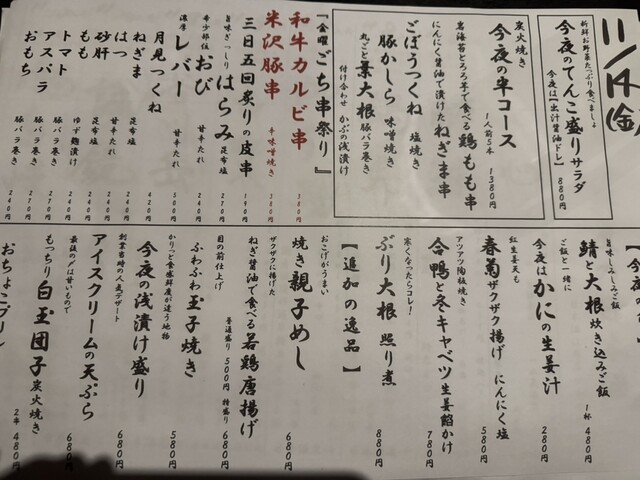 11/14(金)
新鮮お野菜たっぷり食べましょ
今夜のてんこ盛りサラダ
今夜は【出汁醤油ドレ】
880円
炭火焼き
今夜の串コース
1人前5本
1380円
岩海苔とろろ芋で食べる鶏もも串
にんにく醤油で漬けたねぎま串
ごぼうつくね 塩焼き
豚かしら 味噌焼き
丸ごと葉大根 豚バラ巻き
付け合わせ かぶの浅漬け
『金曜ごち串祭り』
和牛カルビ串
380円
米沢豚串
辛味噌焼き
380円
三日五回炙りの皮串
190円
旨味ぎっしり はらみ
昆布塩
230円
希少部位 おび
甘辛たれ
240円
濃厚 レバー
甘辛たれ
500円
月見つくね
420円
ねぎま
甘辛たれ
240円
はつ
昆布塩
240円
砂肝
昆布塩
240円
もも
ゆず麹漬け
240円
トマト
豚バラ巻き
270円
アスパラ
豚バラ巻き
270円
おもち
豚バラ巻き
240円
旨味しみしみご飯
鯖と大根 炊き込みご飯
1杯 480円
ご飯と一緒に
今夜はかにの生姜汁
280円
紅生姜天も
春菊ザクザク揚げ にんにく塩
580円
アツアツ陶板焼き
合鴨と冬キャベツ 生姜餡かけ
780円
寒くなったらコレ!
ぶり大根 照り煮
880円
【追加の逸品】
おこげがうまい
焼き親子めし
680円
ザクザクに揚げた
ねぎ醤油で食べる若鶏唐揚げ
普通盛り 500円 特盛り 680円
目の前仕上げ
ふわふわ玉子焼き
580円
かりっと食感鮮度が違う地物
今夜の浅漬け盛り
680円
創業当時の人気デザート
アイスクリームの天ぷら
680円
最後の〆は甘いもので
もっちり白玉団子 炭火焼き
2串 480円
おちょこプリン